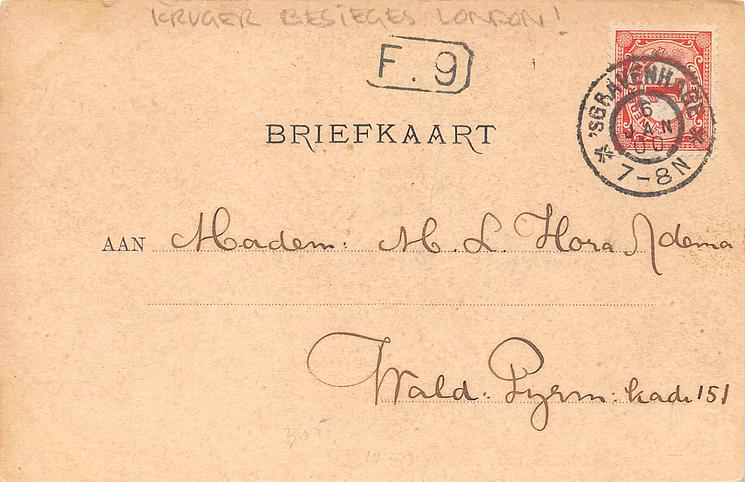 KRUGER BESIEGES LONDON!
F. 9
'SGRAVENHAGE
6
JAN
00
7-8N
BRIEFKAART
AAN Madem: M. L. Hora Adema
Wald: Pyrm: kade 151